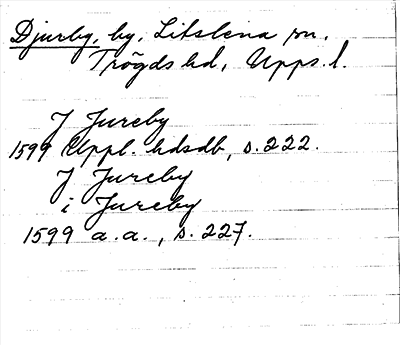 Djurby, by, Litslena sn.
Trögds hd, Upps. l.
J Jureby
1599 Uppl. hdsdb, s. 222.
J Jureby
i Jureby
1599 a.a., s. 227.